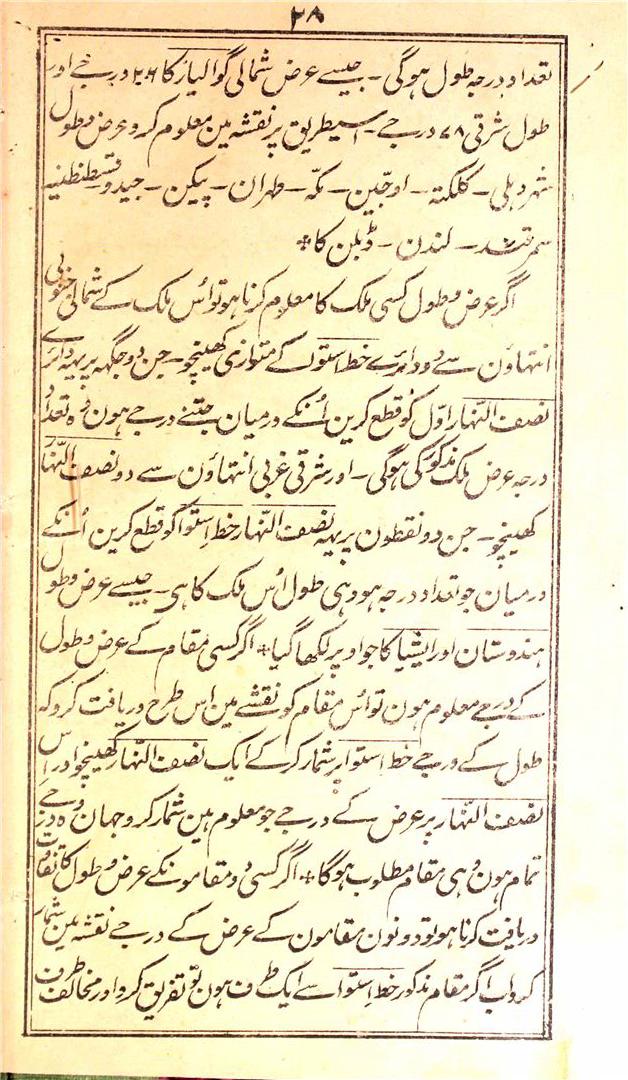 ۲۸
تعداد درجہ طول ہوگی۔ جیسے عرض شمالی گوالیار کا ۲۶ درجے اور
طول شرقی ۷۸ درجے۔ اسیطریق پر نقشہ مین معلوم کرو عرض و طول
شہر دہلی۔ کلکتہ۔ اوجین۔ مکّہ۔ طہران۔ پیکن۔ جیدو۔ قسطنطنیہ
سمرقند۔ لندن۔ ڈبلن کا٭
اگر عرض و طول کسی ملک کا معلوم کرنا ہو تو اُس ملک کے شمالی جنوبی
انتہاؤن سے دو دائرے خط استوا کے متوازی کھینچو۔ جن دو جگہہ پر یہہ دائرے
نصف النہار اوّل کو قطع کرین اُنکے درمیان جتنے درجے ہون وُہ تعداد
درجہ عرض ملک مذکور کی ہوگی۔ اور شرقی غربی انتہاؤن سے دو نصف النّہار
کھینچو۔ جن دو نقطون پر یہہ نصف النّہار خط اِستوا کو قطع کرین اُنکے
درمیان جو تعداد درجہ ہو وہی طول اُس ملک کا ہی۔ جیسے عرض و طول
ہندوستان اور ایشیا کا جو اوپر لکھا گیا٭ اگر کسی مقام کے عرض و طول
کے درجے معلوم ہون تو اُس مقام کو نقشے مین اِس طرح دریافت کرو کہ
طول کے درجے خط اِستوا پر شمار کر کے ایک نصف النّہار کھینچو اور اِس
نصف النّہار پر عرض کے درجے جو معلوم ہین شمار کرو جہان وُہ درجے
تمام ہون وُہی مقام مطلوب ہوگا٭ اگر کسی دو مقامونکے عرض و طول کا تفاوت
دریافت کرنا ہو تو دونون مقامون کے عرض کے درجے نقشہ مین شمار
کرو اب اگر مقام مذکور خط اِستوا سے ایک طرف ہون تو تفریق کرو اور مخالف طرف